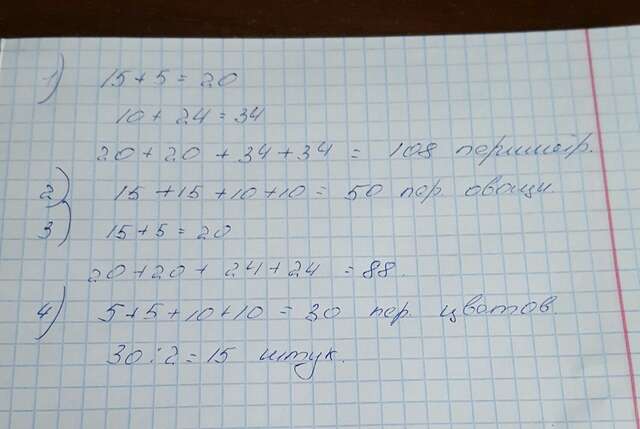 1) 15 + 5 = 20
10 + 24 = 34
20 + 20 + 34 + 34 = 108 периметр.
2) 15 + 15 + 10 + 10 = 50 пер овощи
3) 15 + 5 = 20
20 + 20 + 24 + 24 = 88.
4) 5 + 5 + 10 + 10 = 30 пер. цветов
30 : 2 = 15 штук.